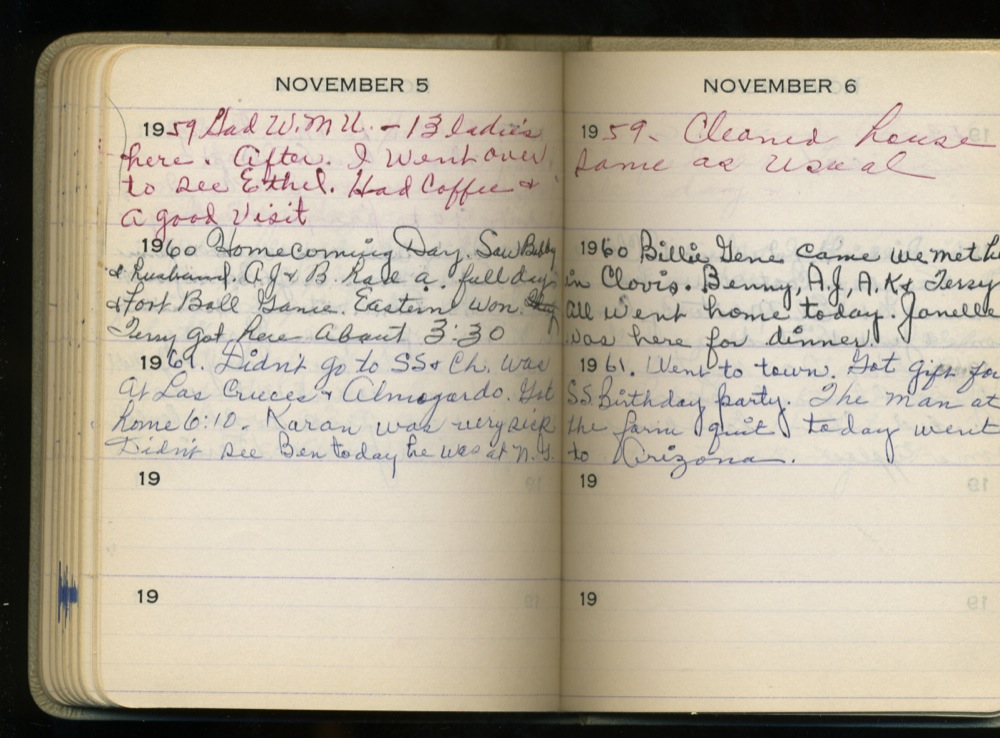 NOVEMBER 5
1959 Had W.M.U. - 13 ladies
here. After. I went over
to see Ethel. Had Coffee &
a good Visit
1960 Homecoming Day. Saw Bobby
& husband. A.J & B. have a. full day
& Foot Ball Game. Eastern won.
Terry got here About 3:30
1961. Didn't go to SS & Ch. was
At Las Cruces & Almogardo. Got
home 6:10. Karan was very sick
Didn't see Ben today he was at N.
19
19
NOVEMBER 6
1959- Cleaned house
same as Usual
1960 Billie Gene came we met h
in Clovis. Benny, A.J, A.K &
All went home today. Janelle
was here for dinner.
1961. Went to town. Got gift for
SS Birthday party. The man at
the farm quit today went
to Arizona.
19
19